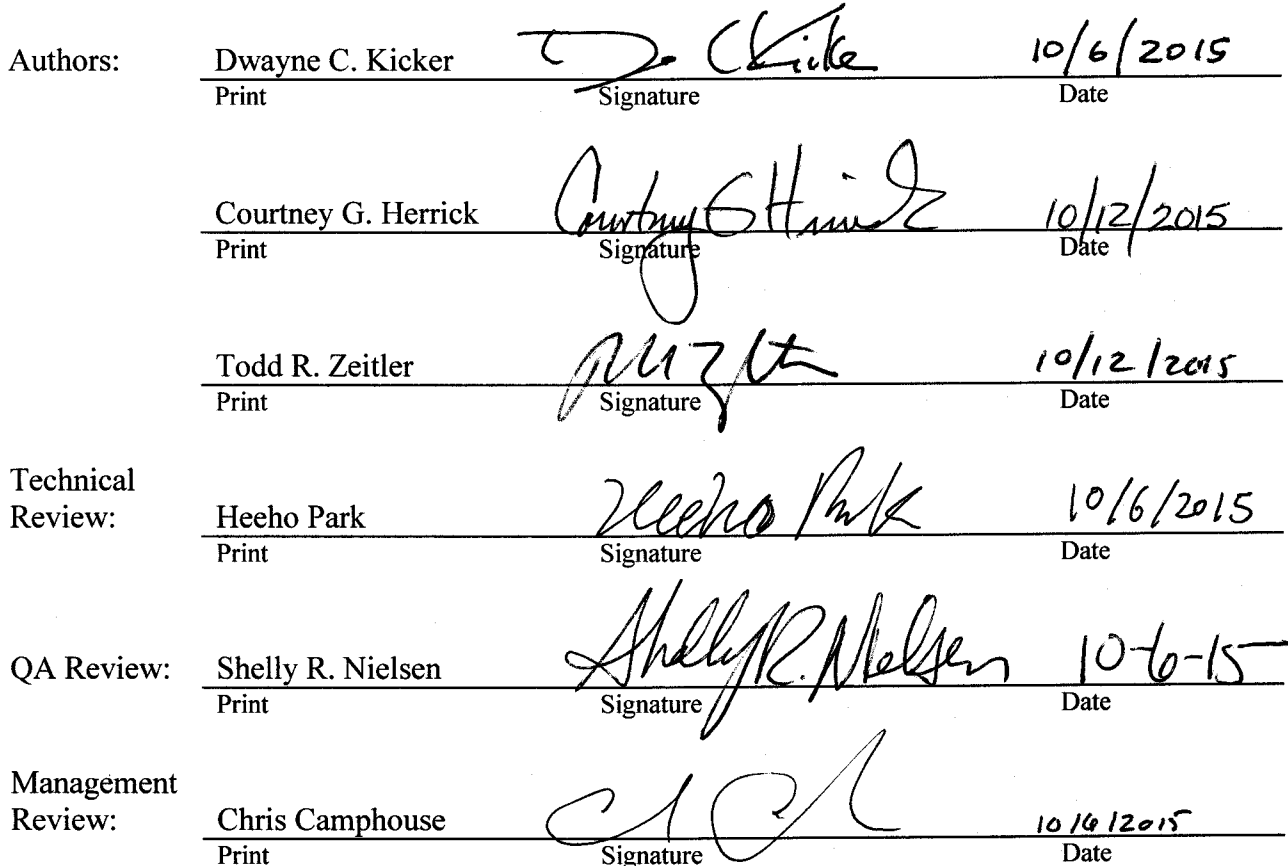 Authors: Dwayne C. Kicker D. C Kicke 10/6/2015
Print Signature Date
Courtney G. Herrick Courtney G Herrick 10/12/2015
Print Signature Date
Todd R. Zeitler 10/12/2015
Print Signature Date
Technical
Review: Heeho Park Heeho Park 10/6/2015
Print Signature Date
QA Review: Shelly R. Nielsen Shelly R. Nielsen 10-6-15
Print Signature Date
Management
Review: Chris Camphouse 10/6/2015
Print Signature Date